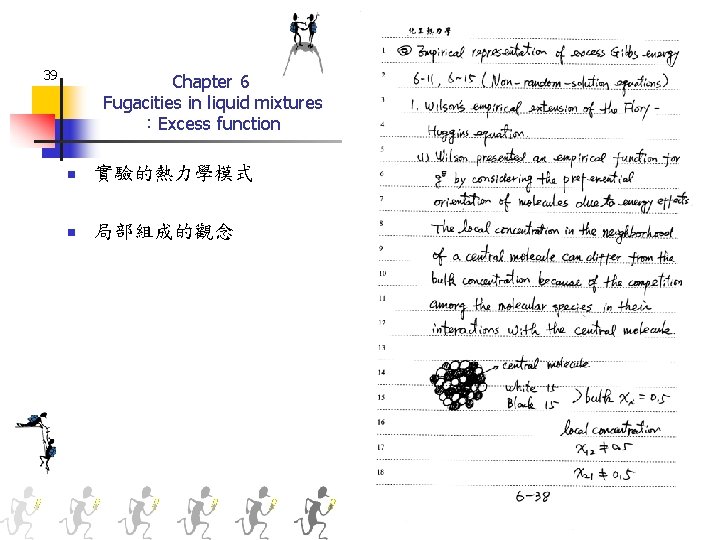 39
Chapter 6
Fugacities in liquid mixtures
：Excess function
實驗的熱力學模式
局部組成的觀念
化工熱力學
1 ⑤ Empirical representation of excess Gibbs energy
2 6-11, 6-15 (Non-random-solution equations)
3 1. Wilson's empirical extension of the Flory-
4 Huggins equation.
5 (1) Wilson presented an empirical function for
6 g^E by considering the preferential
7 orientation of molecules due to energy effects
8 The local concentration in the neighborhood
9 of a central molecule can differ from the
10 bulk concentration because of the competition
11 among the molecular species in their
12 interactions with the central molecule.
13
14 central molecule.
White 15
15 Black 15 > bulk x = 0.5
16 local concentration
17 x12 ≠ 0.5
18 x21 ≠ 0.5
6-38